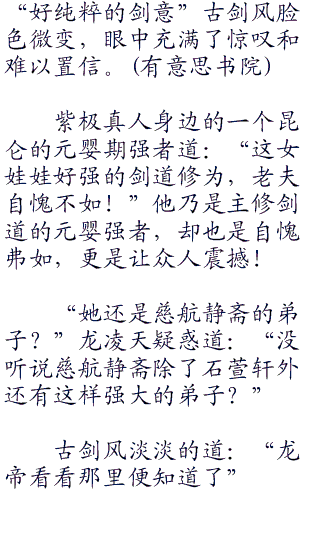 “好纯粹的剑意”古剑风脸
色微变，眼中充满了惊叹和
难以置信。(有意思书院)
紫极真人身边的一个昆
仑的元婴期强者道：“这女
娃娃好强的剑道修为，老夫
自愧不如！”他乃是主修剑
道的元婴强者，却也是自愧
弗如，更是让众人震撼！
“她还是慈航静斋的弟
子？”龙凌天疑惑道：“没
听说慈航静斋除了石萱轩外
还有这样强大的弟子？”
古剑风淡淡的道：“龙
帝看看那里便知道了”